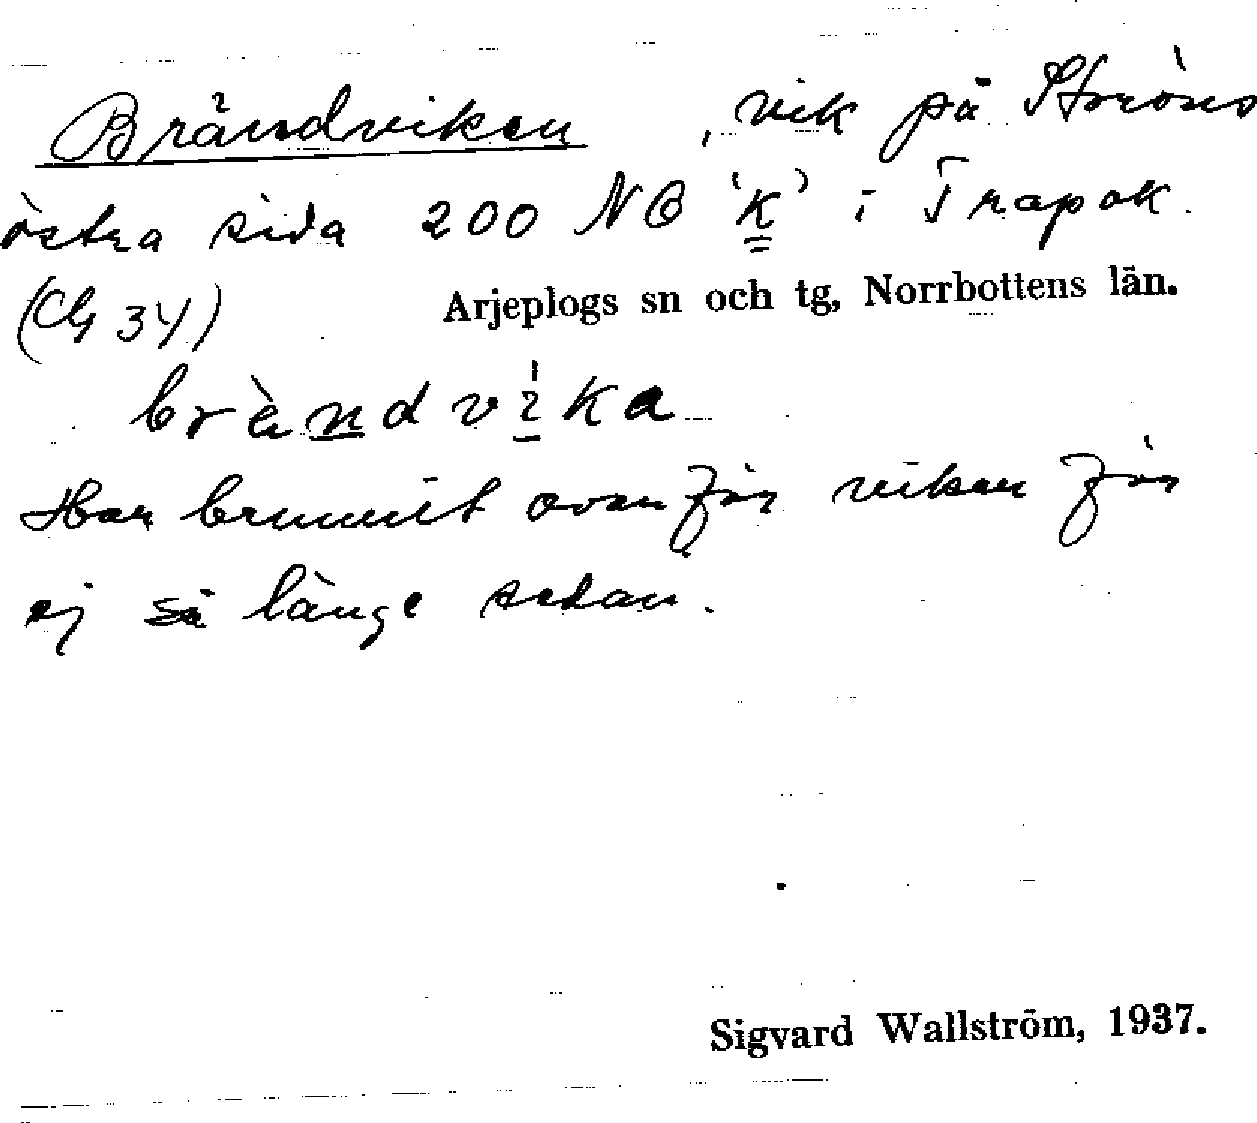 Brändviken, vik på Storöns
östra sida 200 NO 'k' i Trapok.
(Cb 34)
Arjeplogs sn och tg, Norrbottens län.
brèndvìka
Har brunnit ovanför viken för
ej så länge sedan.
Sigvard Wallström, 1937.